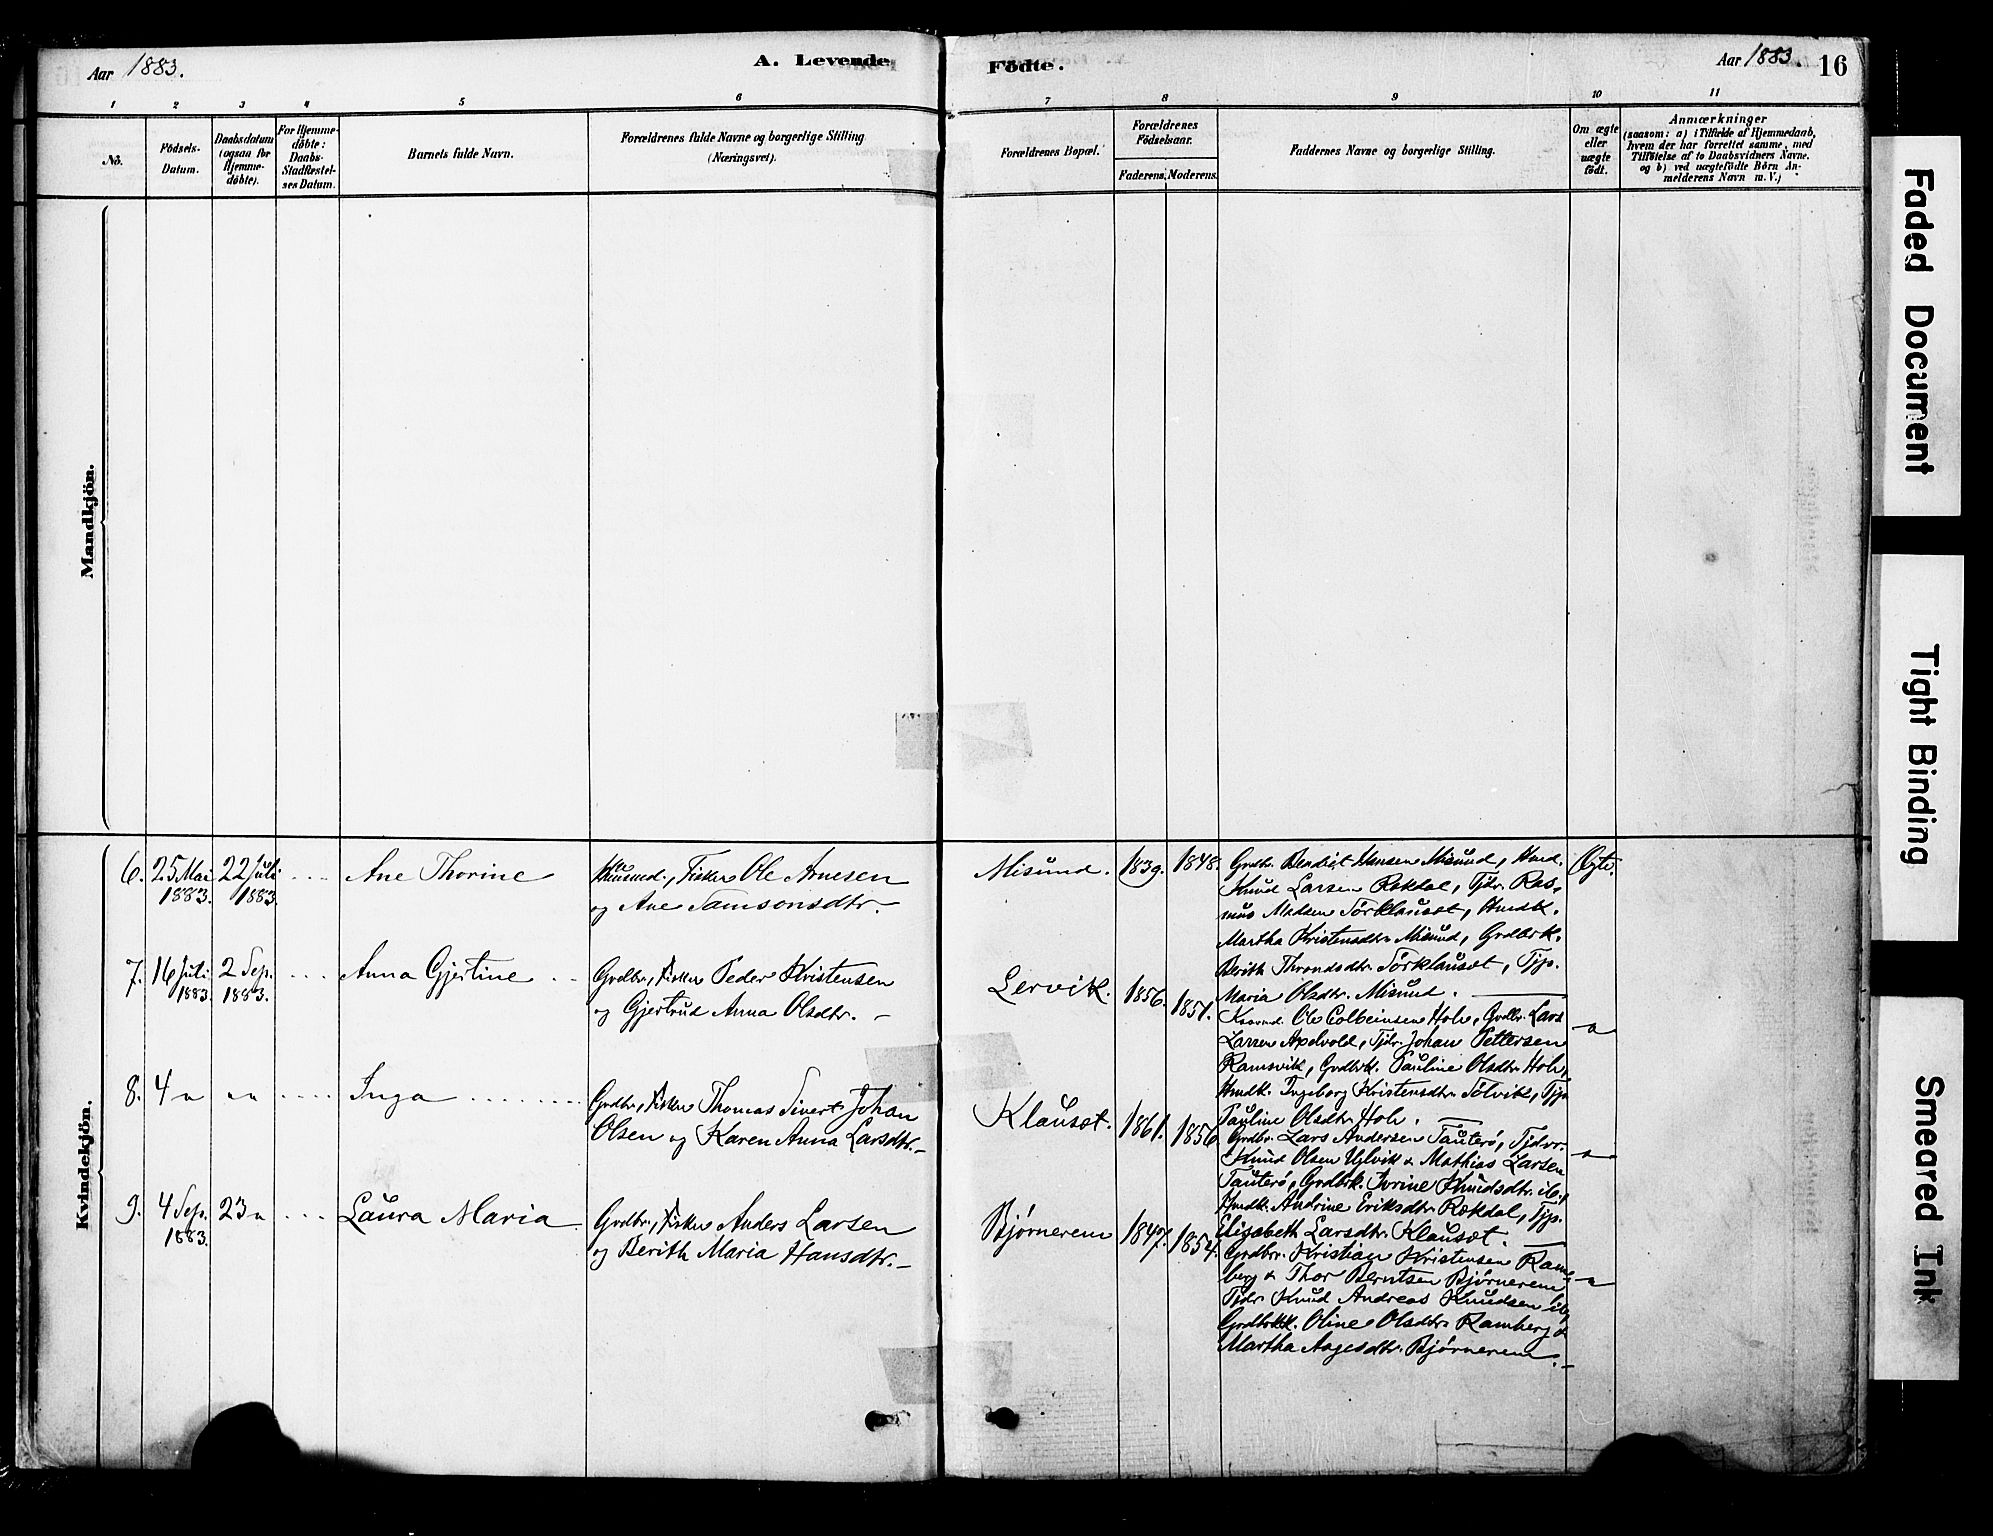 Aar 1883.
A. Levende Födte.
Aar 1883.
16
1
2
3
4
5
6
7
8
9
10
11
No.
Födsels-
Datum.
Daabsdatum
(ogsaa for
Hjemme-
døbte).
For Hjemme-
døbte:
Daabs-
Stadfæstel-
ses Datum.
Barnets fulde Navn.
Forældrenes fulde Navne og borgerlige Stilling
(Næringsvei).
Forældrenes Bopæl.
Forældrenes
Födselsaar.
Faderens.
Moderens.
Faddernes Navne og borgerlige Stilling.
Om ægte
eller
uægte
født.
Anmærkninger
(saasom: a) i Tilfælde af Hjemmedaab,
hvem der har forrettet samme, med
Tilføielse af to Daabsvidners Navne,
og b) ved uægtefødte Börn An-
melderens Navn m. V.)
Mandkjön.
Kvindekjön.
6.
25 Mai
1883.
22 Juli
1883.
Ane Thorine
Husmd., Fisker Ole Arnesen
og Ane Samsonsdtr.
Misund.
1839.
1848.
Grdbr. Bendict Hansen Misund, Husd.
Knud Larsen Rekdal, Tjdr. Ras-
mus Madsen Sörklauset, Husdk.
Martha Kristensdtr. Misund, Grdbrk.
Berith Throndsdtr. Sörklauset, Tjp.
Maria Olsdtr. Misund.
Ægte.
7.
16 Juli
1883.
2 Sep.
1883.
Anna Gjertine
Grdbr., Fisker Peder Kristensen
og Gjertrud Anna Olsdtr.
Lervik.
1856.
1851.
Ole Colbeinsen Hole, Grdbr. Lars
Larsen Apelvold, Tjdr. Johan Pettersen
Ramsvik, Grdbrk. Pauline Olsdtr. Hole,
Husdk. Ingeborg Kristensdtr. Sölvik, Tjp.
Pauline Olsdtr. Hole.
8.
4 "
" "
Inga
Grdbr., Fisker Thomas Sivert Johan
Olsen og Karen Anna Larsdtr.
Klauset.
1861.
1856.
Grdbr. Lars Andersen Tauterö, Tjdrr.
Knud Olsen Uglvik & Mathias Larsen
Tauterö, Grdbrk. Ivrine Knudsdtr. ib.,
Husdk. Andrine Eriksdtr. Rekdal, Tjp.
Elisabeth Larsdtr. Klauset.
9.
4 Sep.
1883.
23 "
Laura Maria
Grdbr., Fisker Anders Larsen
og Berith Maria Hansdtr.
Bjørnerem
1847.
1854.
Grdbrr. Kristian Kristensen Ram-
berg & Thor Berntsen Bjørnerem
Tjdr. Knud Andreas Knudsen ib.,
Oline Olsdtr. Ramberg &
Martha Aagesdtr. Bjørnerem.
Faded Document
Tight Binding
Smeared Ink